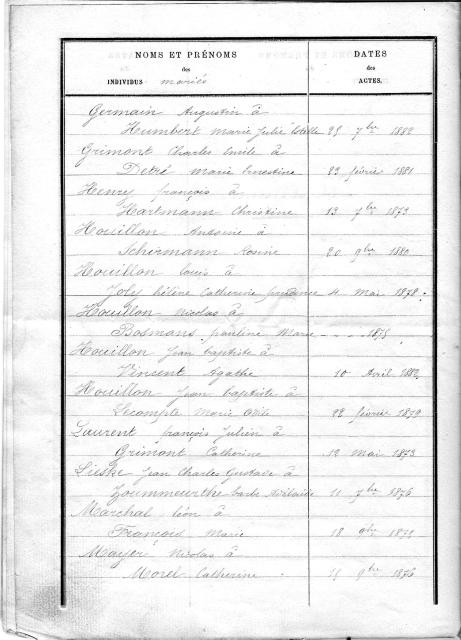 NOMS ET PRÉNOMS DATES
des des
INDIVIDUS mariés ACTES.
Germain Augustin à
Humbert Marie Julie Estelle 25 7bre 1882
Grimont Charles Emile à
Detré Marie Ernestine 23 février 1881
Henry françois à
Hartmann Christine 13 7bre 1873
Houillon Antoine à
Schirmann Rosine 20 9bre 1880
Houillon Louis à
Joly hélène Catherine prudence 4 Mai 1878
Houillon Nicolas à
Bosmans pauline Marie - - - 1875
Houillon Jean baptiste à
Vincent Agathe 10 Avril 1882
Houillon Jean baptiste à
Lecomple Marie 22 février 1879
Laurent françois Julien à
Grimont Catherine 12 Mai 1873
Lieske Jean Charles Gustave à
barbe Adélaïde 11 7bre 1876
Marchal Léon à
François Marie 18 9bre 1875
Mayer Nicolas à
Morel Catherine 9bre 1876